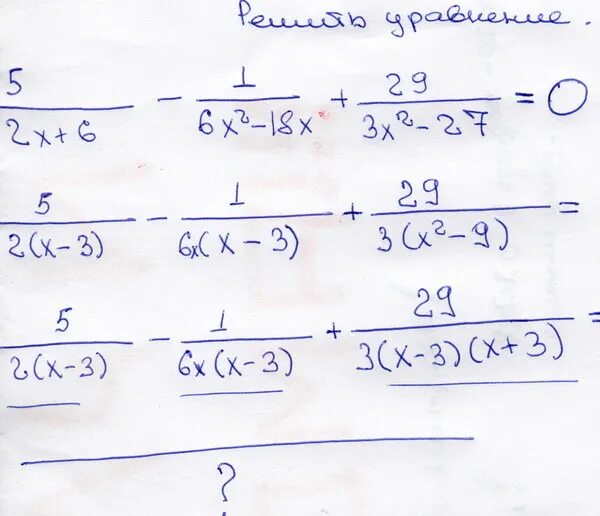 Решить уравнение.
5/(2x+6) - 1/(6x²-18x) + 29/(3x²-27) = 0
5/(2(x-3)) - 1/(6x(x-3)) + 29/(3(x²-9)) =
5/(2(x-3)) - 1/(6x(x-3)) + 29/(3(x-3)(x+3)) =
?